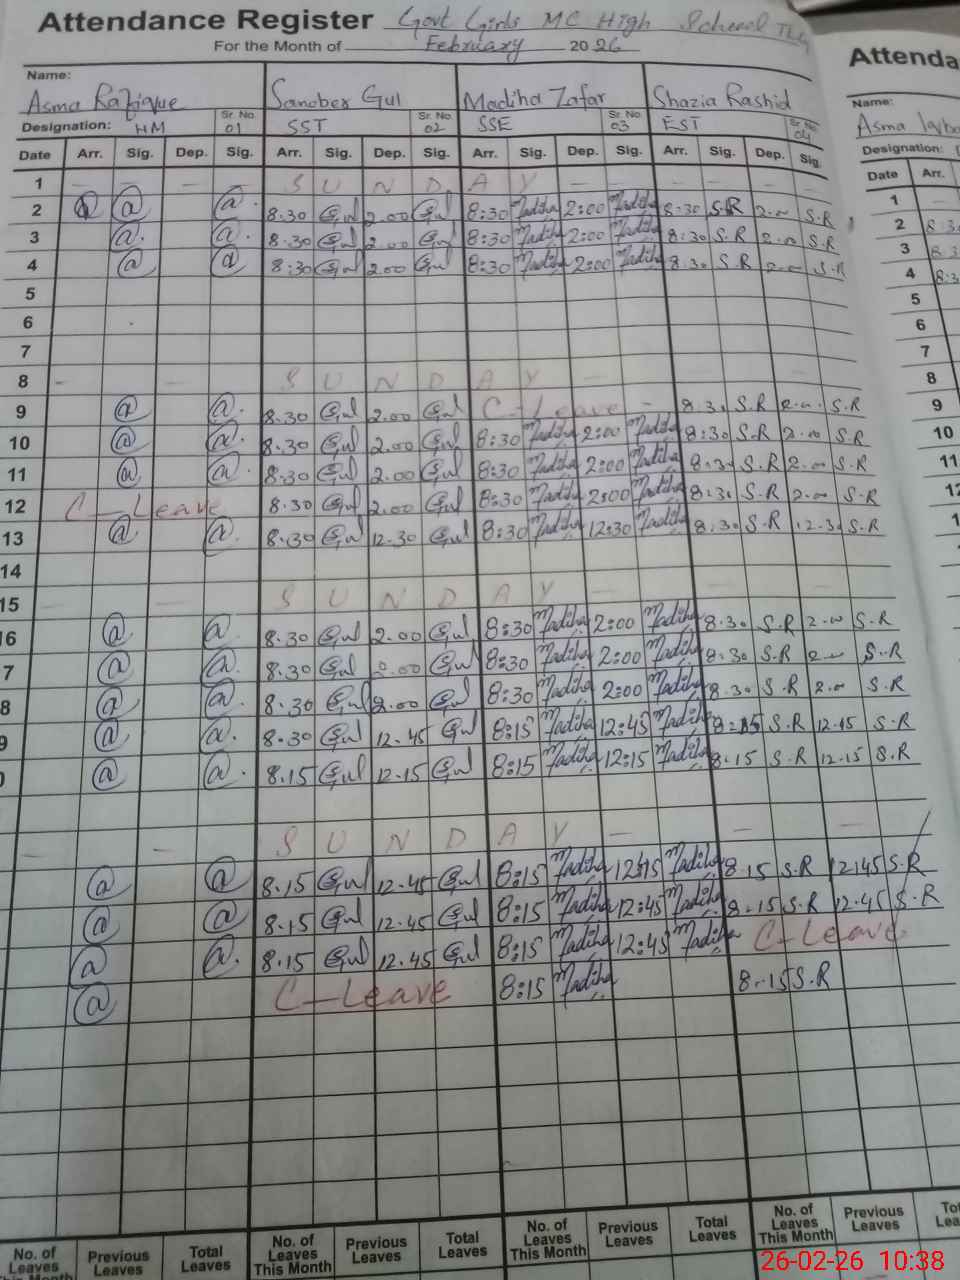 Attendance Register Govt Girls MC High School TLG
For the Month of February 2026
Attenda
Name: Asma Rafique Sanober Gul Madiha Zafar Shazia Rashid
Name: Asma
Designation: HM Sr. No. 01 SST Sr. No. 02 SSE Sr. No. 03 EST Sr. No. 04
Designation:
Date Arr. Sig. Dep. Sig. Arr. Sig. Dep. Sig. Arr. Sig. Dep. Sig. Arr. Sig. Dep. Sig.
Date Arr.
1 — — — — S U N D A Y — — — — — —
2 @ @ 8.30 Gul 2.00 Gul 8:30 Madiha 2:00 Madiha 8.30 S.R 2.00 S.R
3 @ @ 8.30 Gul 2.00 Gul 8:30 Madiha 2:00 Madiha 8.30 S.R 2.00 S.R
4 @ @ 8:30 Gul 2.00 Gul 8:30 Madiha 2:00 Madiha 8.30 S.R 2.00 S.R
5
6
7
8 — — S U N D A Y — — —
9 @ @ 8.30 Gul 2.00 Gul C-Leave - 8.30 S.R 2.00 S.R
10 @ @ 8.30 Gul 2.00 Gul 8:30 Madiha 2:00 Madiha 8:30 S.R 2.00 S.R
11 @ @ 8.30 Gul 2.00 Gul 8:30 Madiha 2:00 Madiha 8.30 S.R 2.00 S.R
12 C-Leave 8.30 Gul 2.00 Gul 8:30 Madiha 2:00 Madiha 8.30 S.R 2.00 S.R
13 @ @ 8.30 Gul 12.30 Gul 8:30 Madiha 12:30 Madiha 8.30 S.R 12.30 S.R
14
15 — — — S U N D A Y — — — —
6 @ @ 8.30 Gul 2.00 Gul 8:30 Madiha 2:00 Madiha 8.30 S.R 2.00 S.R
7 @ @ 8.30 Gul 2.00 Gul 8:30 Madiha 2:00 Madiha 8.30 S.R 2.00 S.R
8 @ @ 8.30 Gul 2.00 Gul 8:30 Madiha 2:00 Madiha 8.30 S.R 2.00 S.R
9 @ @ 8.30 Gul 12.45 Gul 8:15 Madiha 12:45 Madiha 8:15 S.R 12.45 S.R
0 @ @ 8.15 Gul 12.15 Gul 8:15 Madiha 12:15 Madiha 8.15 S.R 12.15 S.R
— — — S U N D A Y — — —
@ @ 8.15 Gul 12.45 Gul 8:15 Madiha 12:45 Madiha 8.15 S.R 12.45 S.R
@ @ 8.15 Gul 12.45 Gul 8:15 Madiha 12:45 Madiha 8.15 S.R 12.45 S.R
@ @ 8.15 Gul 12.45 Gul 8:15 Madiha 12:45 Madiha C-Leave
@ C-Leave 8:15 Madiha 8.15 S.R
1
2 8.3
3 8.3
4 8:3
5
6
7
8
9
10
11
12
1
No. of Leaves This Month Previous Leaves Total Leaves No. of Leaves This Month Previous Leaves Total Leaves No. of Leaves This Month Previous Leaves Total Leaves No. of Leaves This Month Previous Leaves
26-02-26 10:38